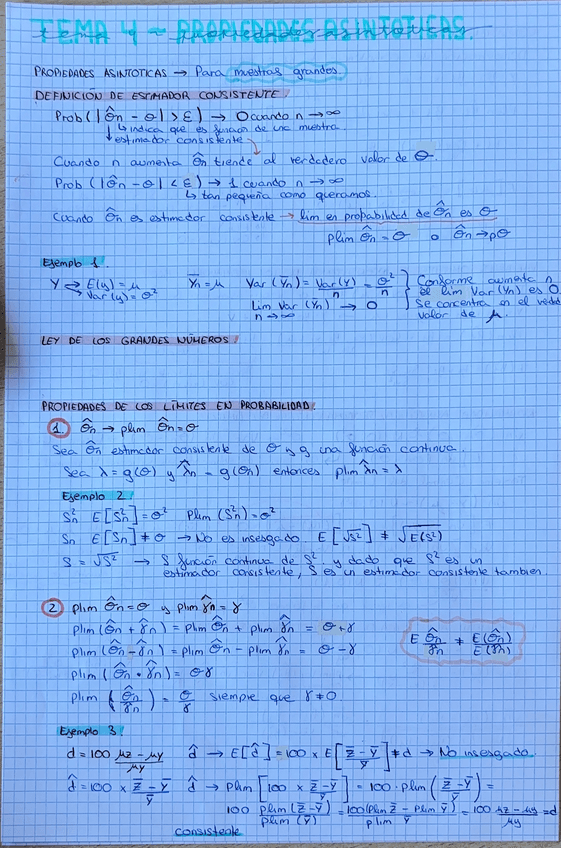 TEMA 4 ~ PROPIEDADES ASINTOTICAS.
PROPIEDADES ASINTOTICAS → Para muestras grandes.
DEFINICIÓN DE ESTIMADOR CONSISTENTE.
Prob (|θ̂n - θ| > ε) → 0 cuando n → ∞
↳ indica que es función de una muestra.
↓ estimador consistente
Cuando n aumenta θ̂n tiende al verdadero valor de θ.
Prob (|θ̂n - θ| < ε) → 1 cuando n → ∞
↳ tan pequeña como queramos.
Cuando θ̂n es estimador consistente → lim en probabilidad de θ̂n es θ
plim θ̂n = θ o θ̂n →p θ
Ejemplo 1.
Y → E(y) = μ Ȳn = μ Var (Ȳn) = Var(Y)/n = σ²/n Conforme aumenta n
→ Var(y) = σ² el lim Var(Ȳn) es 0.
Lim Var (Ȳn) → 0 Se concentra en el verdad
n → ∞ valor de μ.
LEY DE LOS GRANDES NÚMEROS.
PROPIEDADES DE LOS LÍMITES EN PROBABILIDAD.
1. θ̂n → plim θ̂n = θ
Sea θ̂n estimador consistente de θ y g una función continua.
Sea λ = g(θ) y λ̂n = g(θ̂n) entonces plim λ̂n = λ
Ejemplo 2
S²n E[S²n] = σ² Plim (S²n) = σ²
Sn E[Sn] ≠ σ → No es insesgado E[√S²] ≠ √E(S²)
S = √S² → S función continua de S², y dado que S² es un
estimador consistente, S es un estimador consistente tambien
2 plim θ̂n = θ y plim γ̂n = γ
plim (θ̂n + γ̂n) = plim θ̂n + plim γ̂n = θ + γ
plim (θ̂n - γ̂n) = plim θ̂n - plim γ̂n = θ - γ
E θ̂n/γ̂n ≠ E(θ̂n)/E(γ̂n)
plim (θ̂n · γ̂n) = θγ
plim (θ̂n/γ̂n) = θ/γ siempre que γ ≠ 0
Ejemplo 3
d = 100 μz - μy/μy d̂ → E[d̂] = 100 × E[z̄ - ȳ/ȳ] ≠ d → No insesgado
d̂ = 100 × z̄ - ȳ/ȳ d̂ → plim [100 × z̄ - ȳ/ȳ] = 100 · plim (z̄ - ȳ/ȳ) =
100 plim (z̄ - ȳ)/plim (ȳ) = 100 (plim z̄ - plim ȳ)/plim ȳ = 100 μz - μy/μy = d
consistente